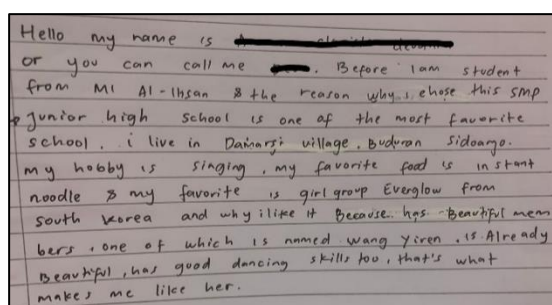 Hello my name is
or you can call me . Before iam student
from MI Al-Ihsan & the reason why i chose this SMP
Junior high school is one of the most favorite
school. i live in Damarsi village, Buduran Sidoarjo.
my hobby is singing, my favorite food is instant
noodle & my favorite is girl group Everglow from
south Korea and why i like it Because has Beautiful mem
bers, one of which is named wang Yiren. is Already
Beautiful, has good dancing skills too, that's what
makes me like her.